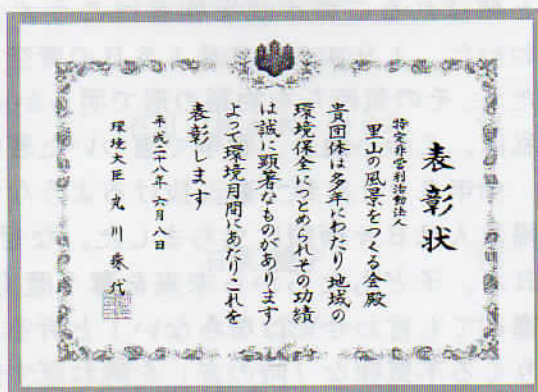 表彰状
特定非営利活動法人
里山の風景をつくる会殿
貴団体は多年にわたり地域の
環境保全につとめられその功績
は誠に顕著なものがあります
よって環境月間にあたりこれを
表彰します
平成二十八年六月八日
環境大臣 丸川珠代